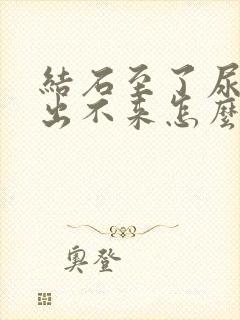 結石至了尿
出不来怎麼
奧登